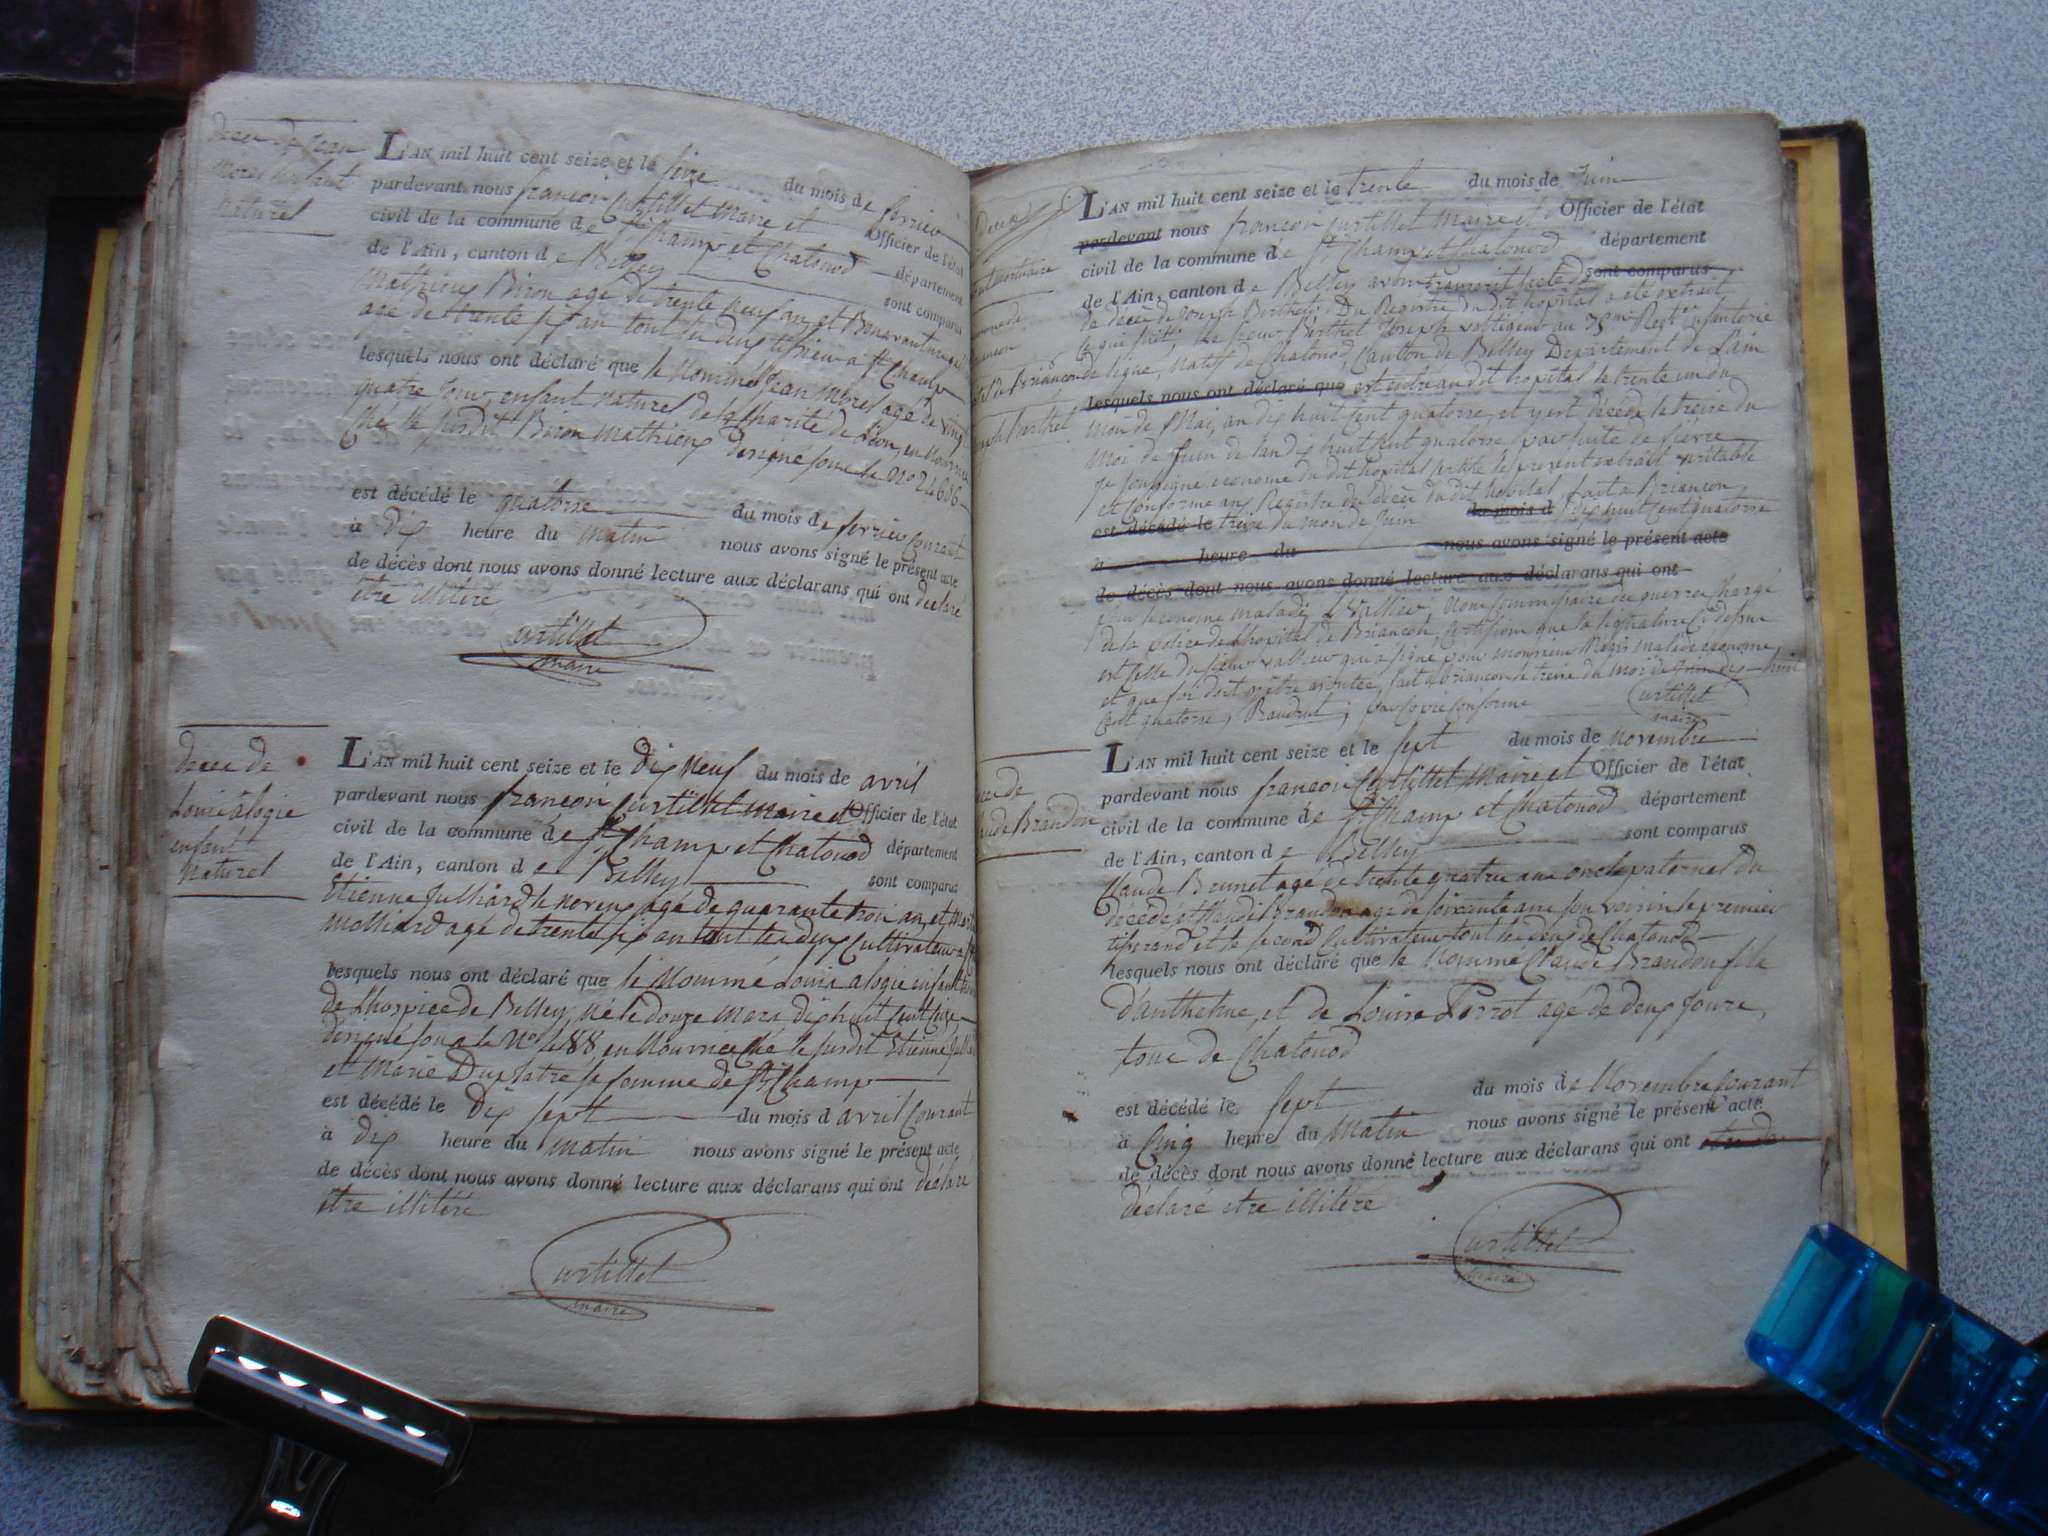 decee de Jean
morel enfant
naturel
L'AN mil huit cent seize et le seize du mois de fevrier
pardevant nous françois Curtillet maire et Officier de l'état
civil de la commune de St Champ et Chatonod département
de l'Ain, canton de Belley sont comparus
Mathieu Biron agé de trente neuf ans et Bonaventure
agé de trente six ans tout les deux à St Champ
lesquels nous ont déclaré que le Nommé Jean Morel agé de vingt
quatre jours enfant naturel de la Charité de Lion, en Nourrice
chez le susdit Biron Mathieux désigné sous le No 24606
est décédé le quatorse du mois de fevrier Courant
à dix heure du matin nous avons signé le présent acte
de décès dont nous avons donné lecture aux déclarans qui ont declaré
etre illitéré
Curtillet
maire
decee de
Louis alogie
enfant
naturel
L'AN mil huit cent seize et le dix neuf du mois de avril
pardevant nous françois Curtillet maire et Officier de l'état
civil de la commune de St Champ et Chatonod département
de l'Ain, canton de Belley sont comparus
Etienne Julliard agé de quarante trois ans, et
molliard agé de trente six ans tout les deux Cultivateur a
lesquels nous ont déclaré que le Nommé Louis alogie enfant
de Lhospice de Belley, né le douze Mars dix huit cent seize
désigné sous le No 488 en Nourrice ché le susdit Etienne
et Marie Duplatre sa femme de St Champ
est décédé le dix sept du mois d avril Courant
à dix heure du matin nous avons signé le présent acte
de décès dont nous avons donné lecture aux déclarans qui ont déclaré
etre illitéré
Curtillet
maire
Mortuaire
Briançon
Berthet
L'AN mil huit cent seize et le trente du mois de Juin
pardevant nous françois Curtillet Maire et Officier de l'état
civil de la commune de St Champ et Chatonod département
de l'Ain, canton de Belley avons transcrit lacte d sont comparus
de décé de Joseph Berthet; Du Registre du dit hopital a été extrait
ce qui suit, le sieur Berthet Joseph voltigeur au Regt infanterie
de ligne, Natif de Chatonod, Canton de Belley Departement de Lain
lesquels nous ont déclaré que est entré au dit hopital le trente un du
mois de Mai, an dix huit cent quatorse, et y est décédé le treise du
moi de Juin de lan dix huit cent quatorse par suite de fievre
je soussigné econome du dit hopital le present extrait veritable
et conforme aux Registre des décé du dit hopital, fait a Briançon
est décédé le treize du mois de Juin du mois d dix huit cent quatorse
à heure du nous avons signé le présent acte
de décès dont nous avons donné lecture aux déclarans qui ont
pour leconome malade Vallier, Nous Commissaire des guerres chargé
de la police de Lhopital de Briançon, Certifions que la signature Ci dessus
est celle du sieur vallier qui a signé pour monsieur Regis malade econome
et que foi doit etre ajoutée, fait a briançon le treise du mois de Juin dix huit
cent quatorse, pour Copie Conforme
Curtillet
maire
de
Brandon
L'AN mil huit cent seize et le sept du mois de Novembre
pardevant nous françois Curtillet Maire et Officier de l'état
civil de la commune de St Champ et Chatonod département
de l'Ain, canton de Belley sont comparus
Claude Brunet agé de trente quatre ans oncle paternel du
décédé et Claude Brandon agé de soixante ans son voisin le premier
tiserand et le second Cultivateur tout les deux de Chatonod
lesquels nous ont déclaré que le Nommé Claude Brandon fils
d'anthelme, et de Louise Perrot agé de deux Jours,
tous de Chatonod
est décédé le sept du mois de Novembre Courant
à Cinq heure du Matin nous avons signé le présent acte
de décès dont nous avons donné lecture aux déclarans qui ont
déclaré etre illitéré
Curtillet
maire